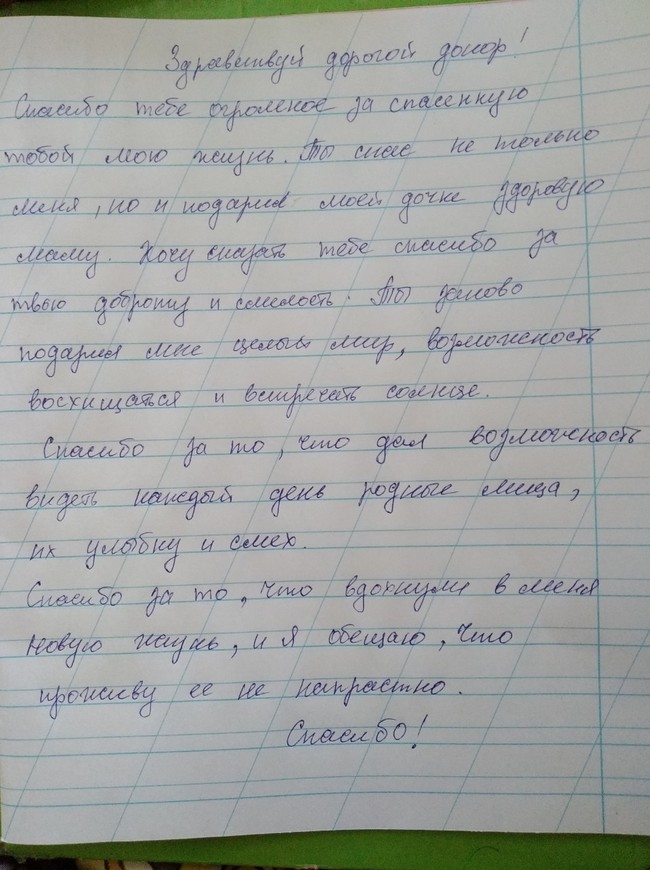 Здравствуй дорогой донор!
Спасибо тебе огромное за спасенную
тобой мою жизнь. Ты спас не только
меня, но и подарил моей дочке здоровую
маму. Хочу сказать тебе спасибо за
твою доброту и смелость. Ты заново
подарил мне целый мир, возможность
восхищаться и встречать солнце.
Спасибо за то, что дал возможность
видеть каждый день родные лица,
их улыбку и смех.
Спасибо за то, что вдохнули в меня
новую жизнь, и я обещаю, что
проживу ее не напрастно.
Спасибо!